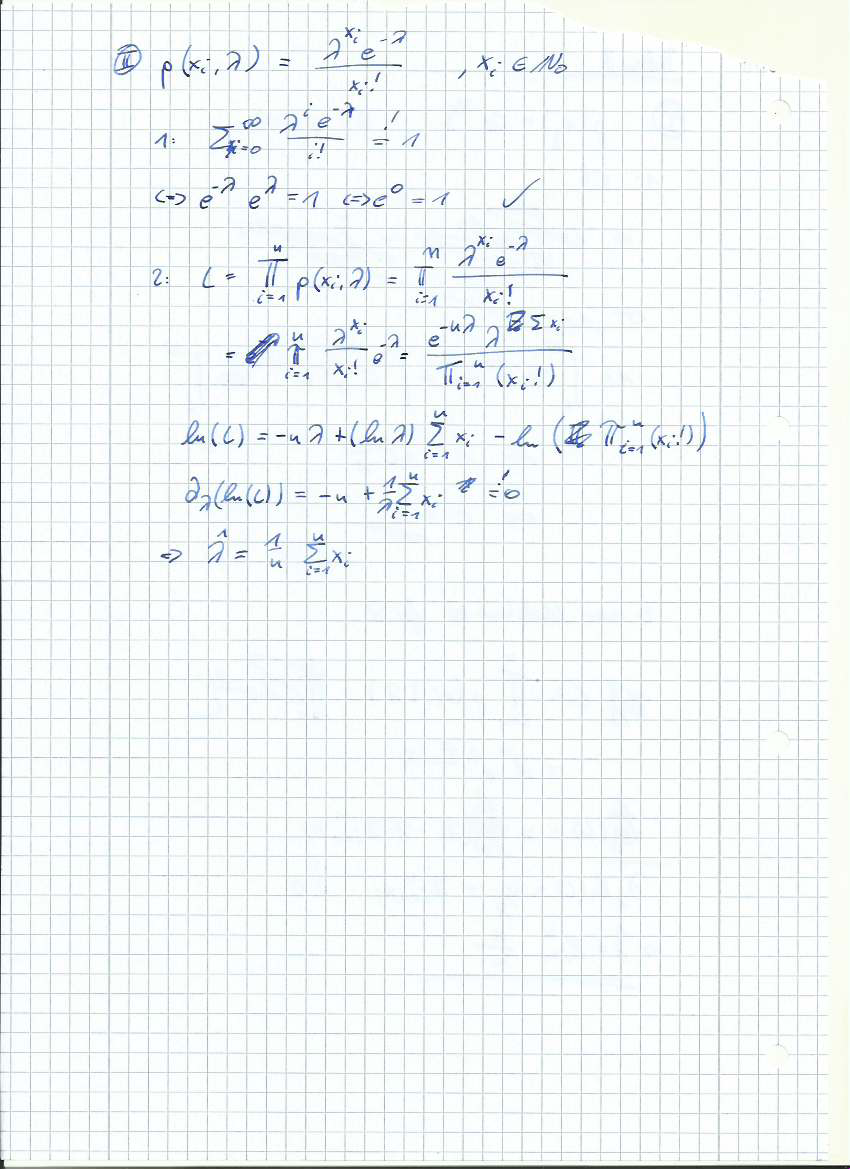 II p(xi, λ) = λ^xi e^-λ / xi! , xi ∈ ℕ0
1: Σ_i=0^∞ λ^i e^-λ / i! =! 1
<=> e^-λ e^λ = 1 <=> e^0 = 1 ✓
2: L = ∏_i=1^n p(xi, λ) = ∏_i=1^n λ^xi e^-λ / xi!
= ∏_i=1^n λ^xi / xi! e^-λ = e^-nλ λ^Σ xi / ∏_i=1^n (xi!)
ln(L) = -nλ + (ln λ) Σ_i=1^n xi - ln (∏_i=1^n (xi!))
∂λ(ln(L)) = -n + 1/λ Σ_i=1^n xi =! 0
=> λ̂ = 1/n Σ_i=1^n xi